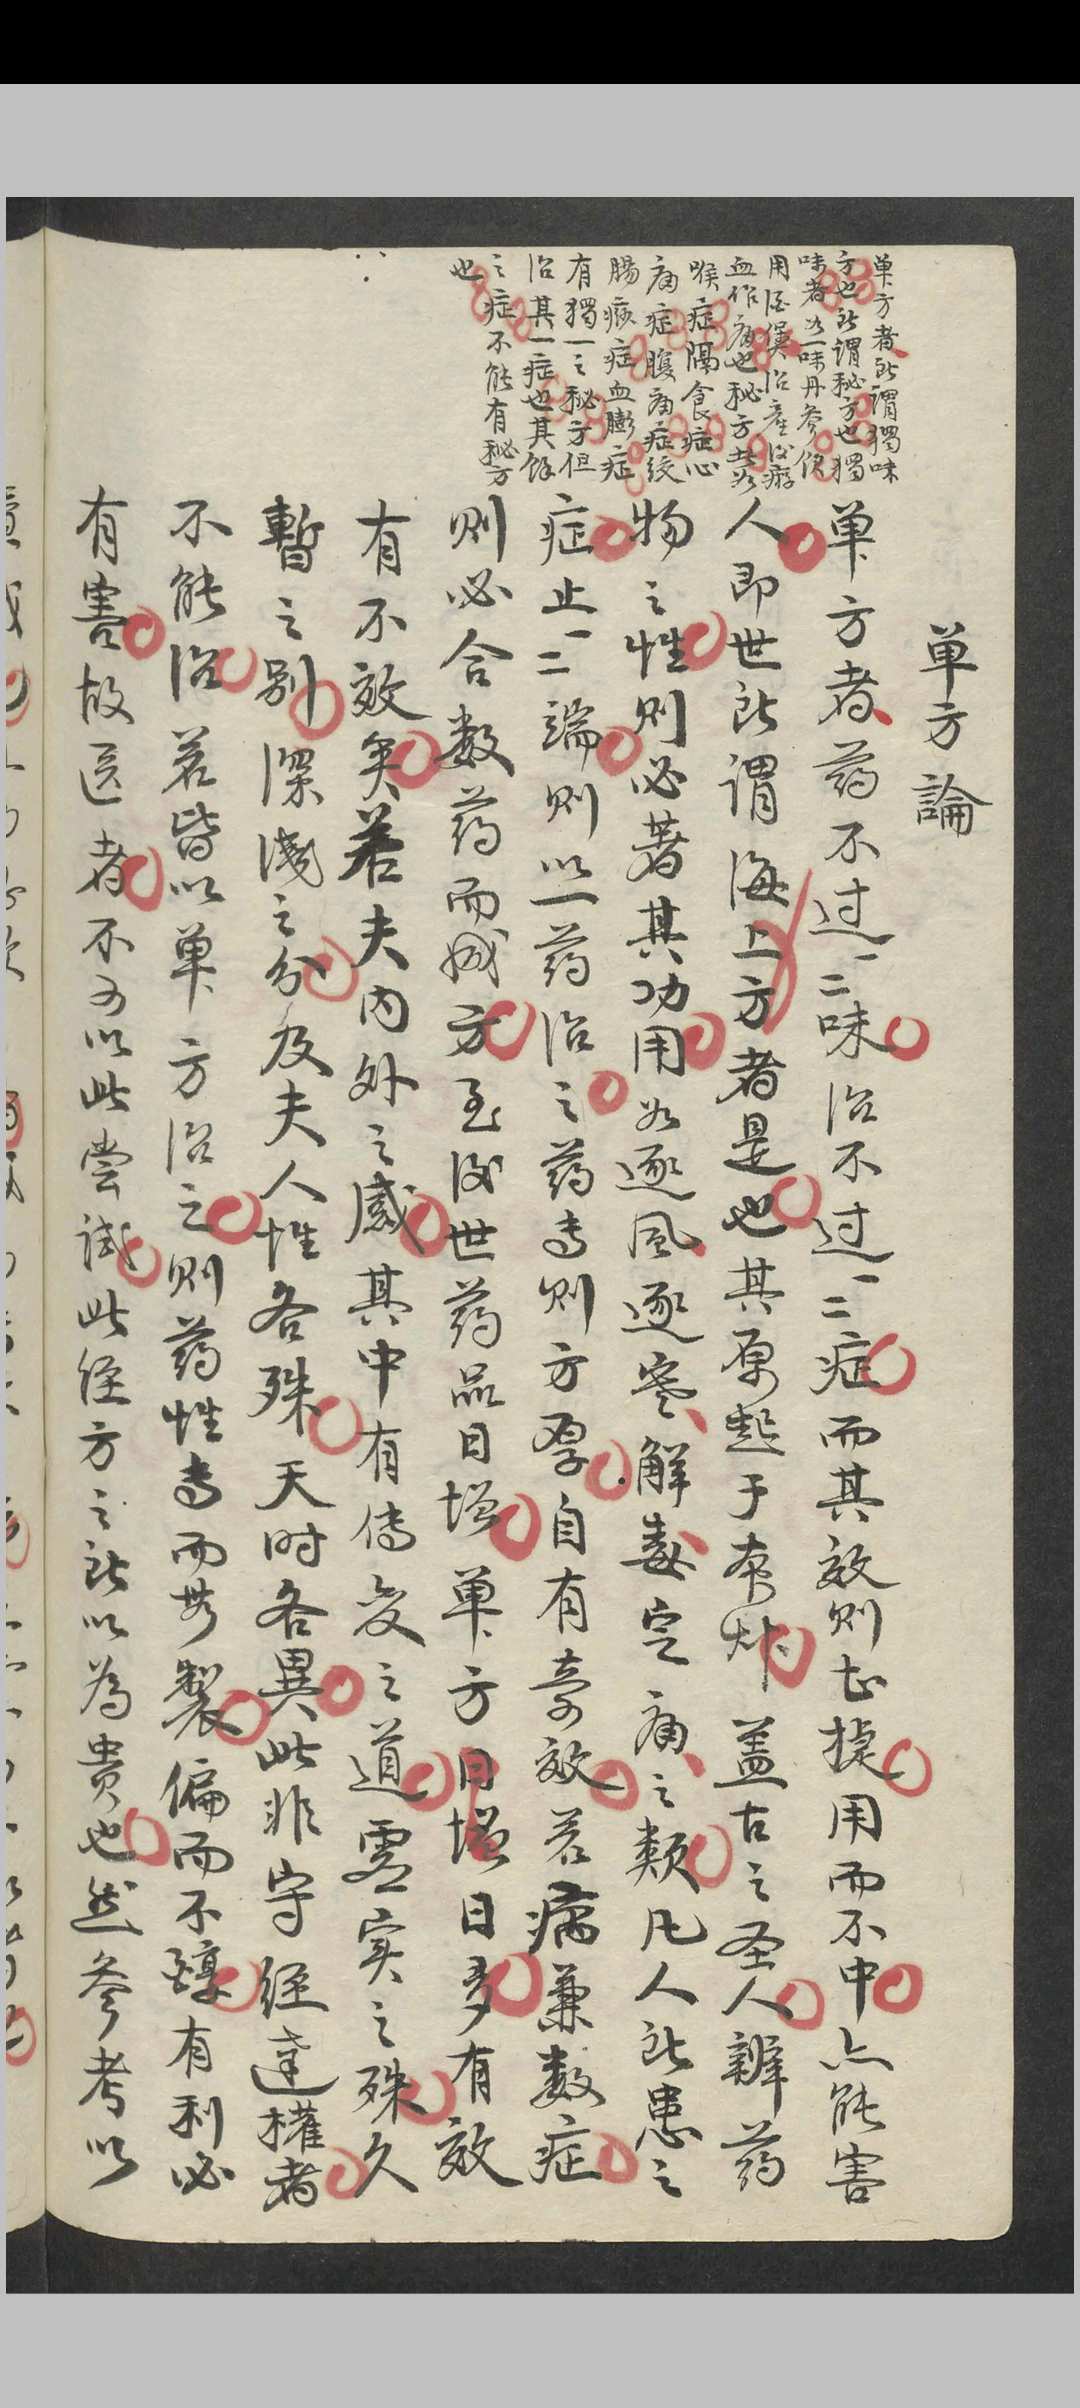 单方論
单方者所谓獨味
方也所谓秘方也獨
味者如一味丹參散
用酒煲治產後瘀
血作痛也秘方者如
喉症隔食症心
痛症腹痛症绞
腸痧症血膨症
有獨一之秘方但
治其一症也其餘
之症不能有秘方
也
单方者药不过一二味治不过一二症而其效则甚捷用而不中亦能害
人即世所谓海上方者是也其原起于本艸盖古之圣人辨药
物之性则必著其功用如逐風逐寒解毒定痛之類凡人所患之
症止一二端则以一药治之药专则方厚自有奇效若病兼数症
则必合数药而成方至後世药品日增单方日增日多有效
有不效矣若夫内外之感其中有传变之道虚实之殊久
暫之别深淺之分及夫人性各殊天时各異此非守经達權者
不能治若皆以单方治之则药性专而無製偏而不醇有利必
有害故医者不可以此尝試此经方之所以為貴也然參考以